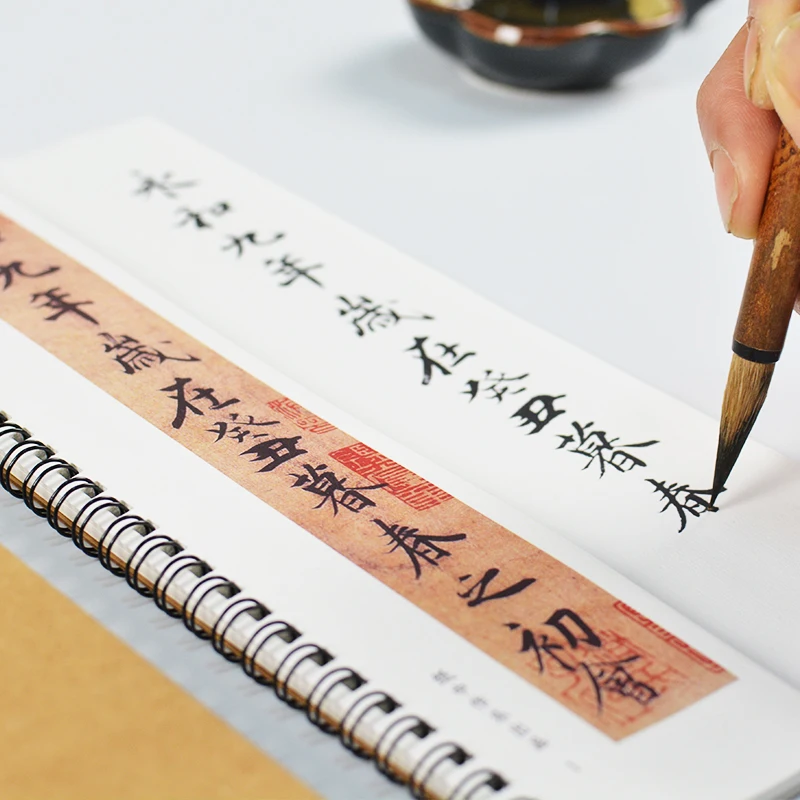 永和九年歲在癸丑暮春
九年歲在癸丑暮春之初會